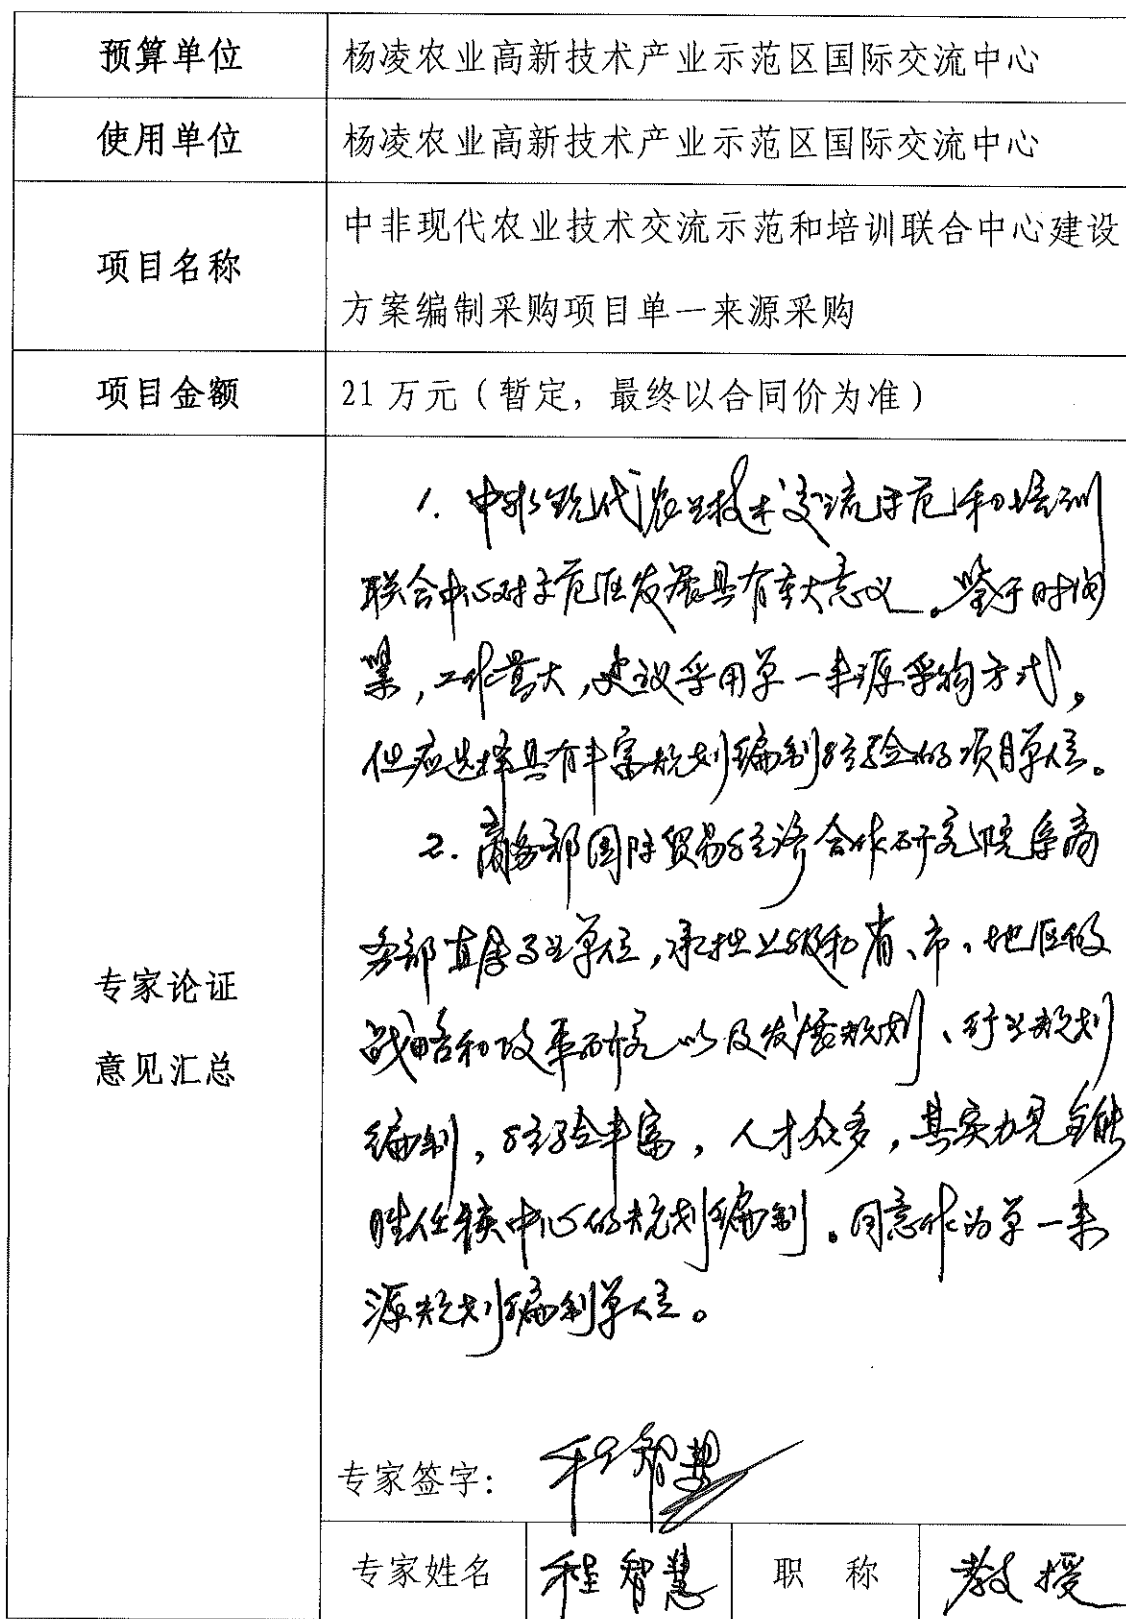 预算单位 杨凌农业高新技术产业示范区国际交流中心
使用单位 杨凌农业高新技术产业示范区国际交流中心
项目名称
中非现代农业技术交流示范和培训联合中心建设
方案编制采购项目单一来源采购
项目金额 21万元（暂定，最终以合同价为准）
专家论证
意见汇总
1. 中非现代农业技术交流示范和培训
联合中心对示范区发展具有重大意义。鉴于时间
紧，工作量大，建议采用单一来源采购方式，
但应选择具有丰富规划编制经验的项目单位。
2. 商务部国际贸易经济合作研究院系商
务部直属事业单位，承担上级和省、市、地区的
战略和改革研究以及发展规划、行业规划
编制，经验丰富，人才众多，其实力完全能
胜任该中心的规划编制。同意作为单一来
源规划编制单位。
专家签字：程智慧
专家姓名 程智慧 职 称 教授